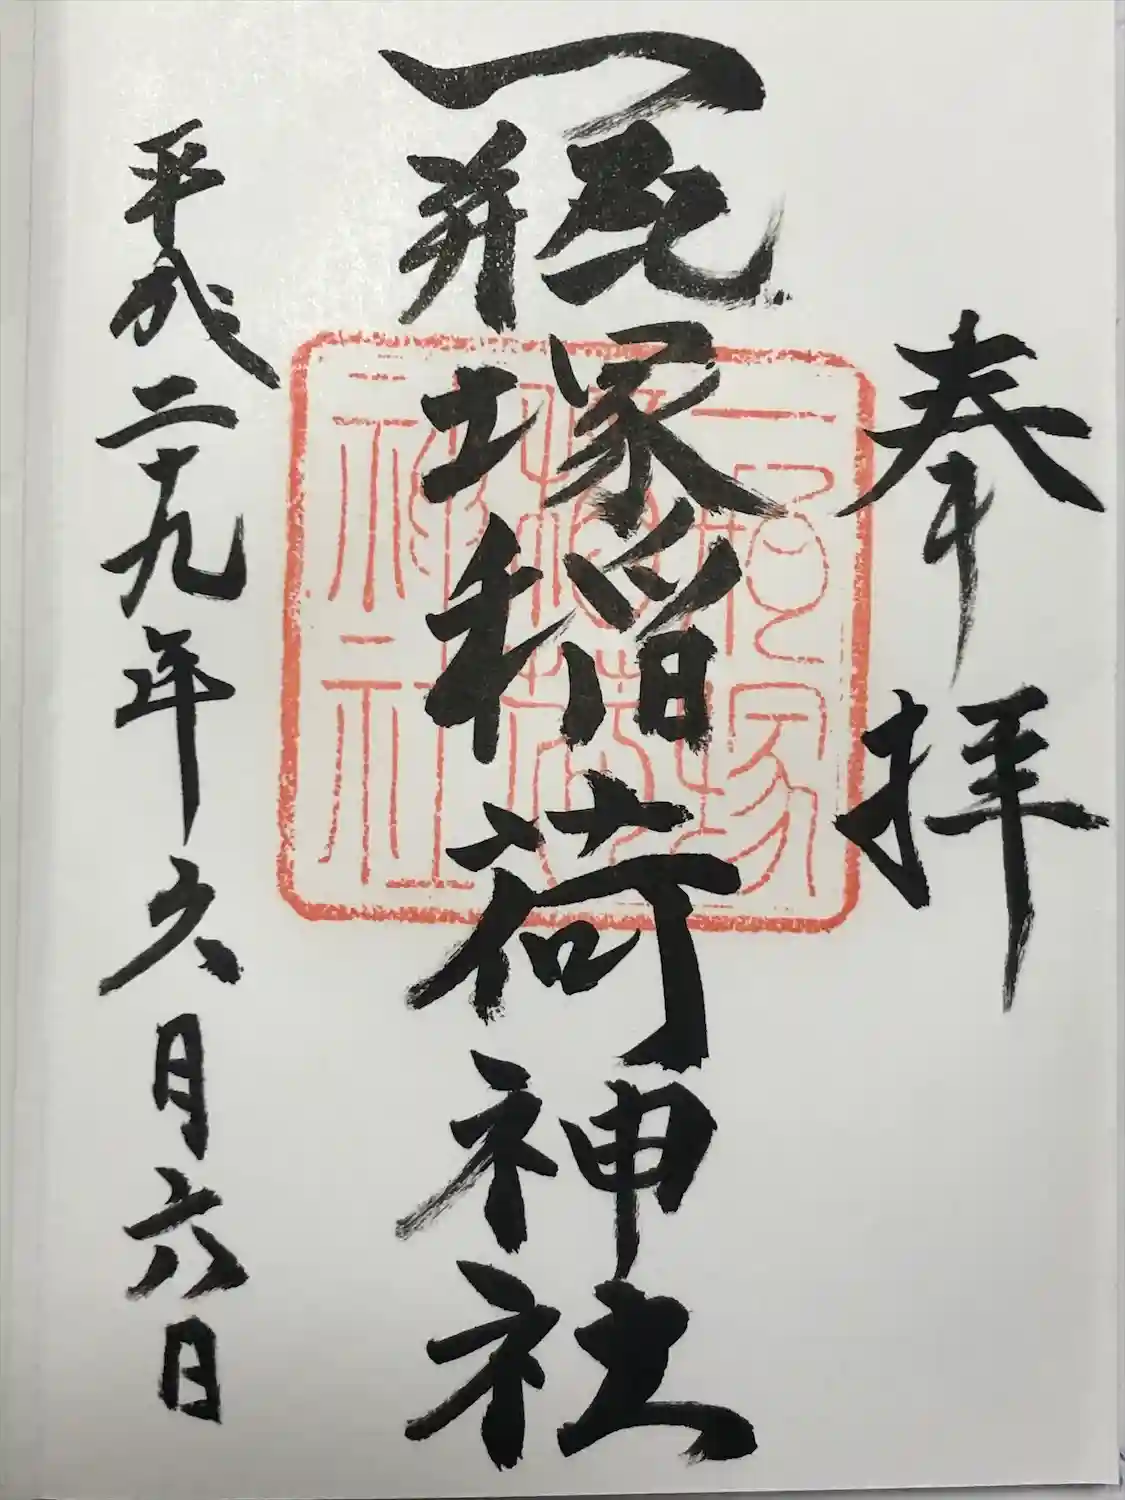 奉拝
一瓶塚稲荷神社
平成二十九年六月六日